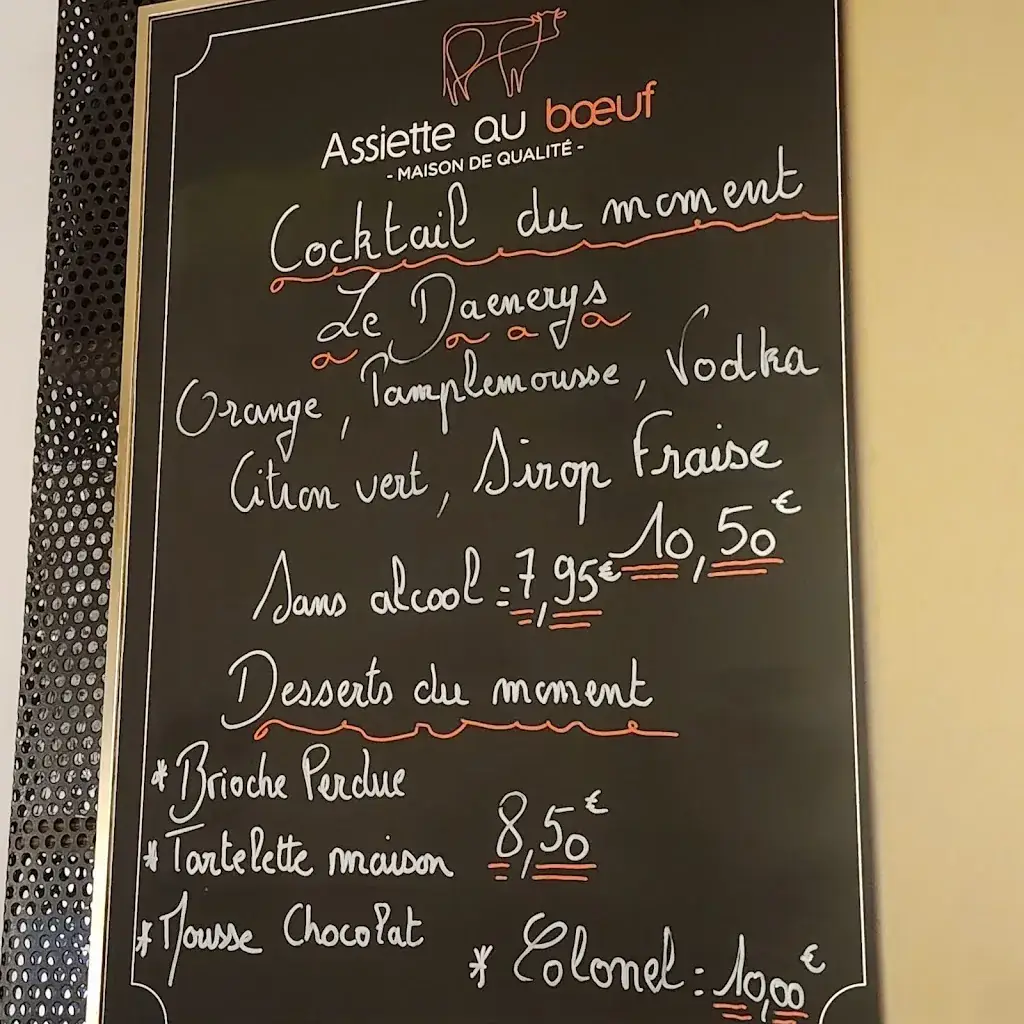 Assiette au bœuf
- MAISON DE QUALITÉ -
Cocktail du moment
Le Daenerys
Orange, Pamplemousse, Vodka
Citron vert, Sirop Fraise
10,50€
Sans alcool : 7,95€
Desserts du moment
* Brioche Perdue
* Tartelette maison 8,50€
* Mousse Chocolat
* Colonel : 10,00€